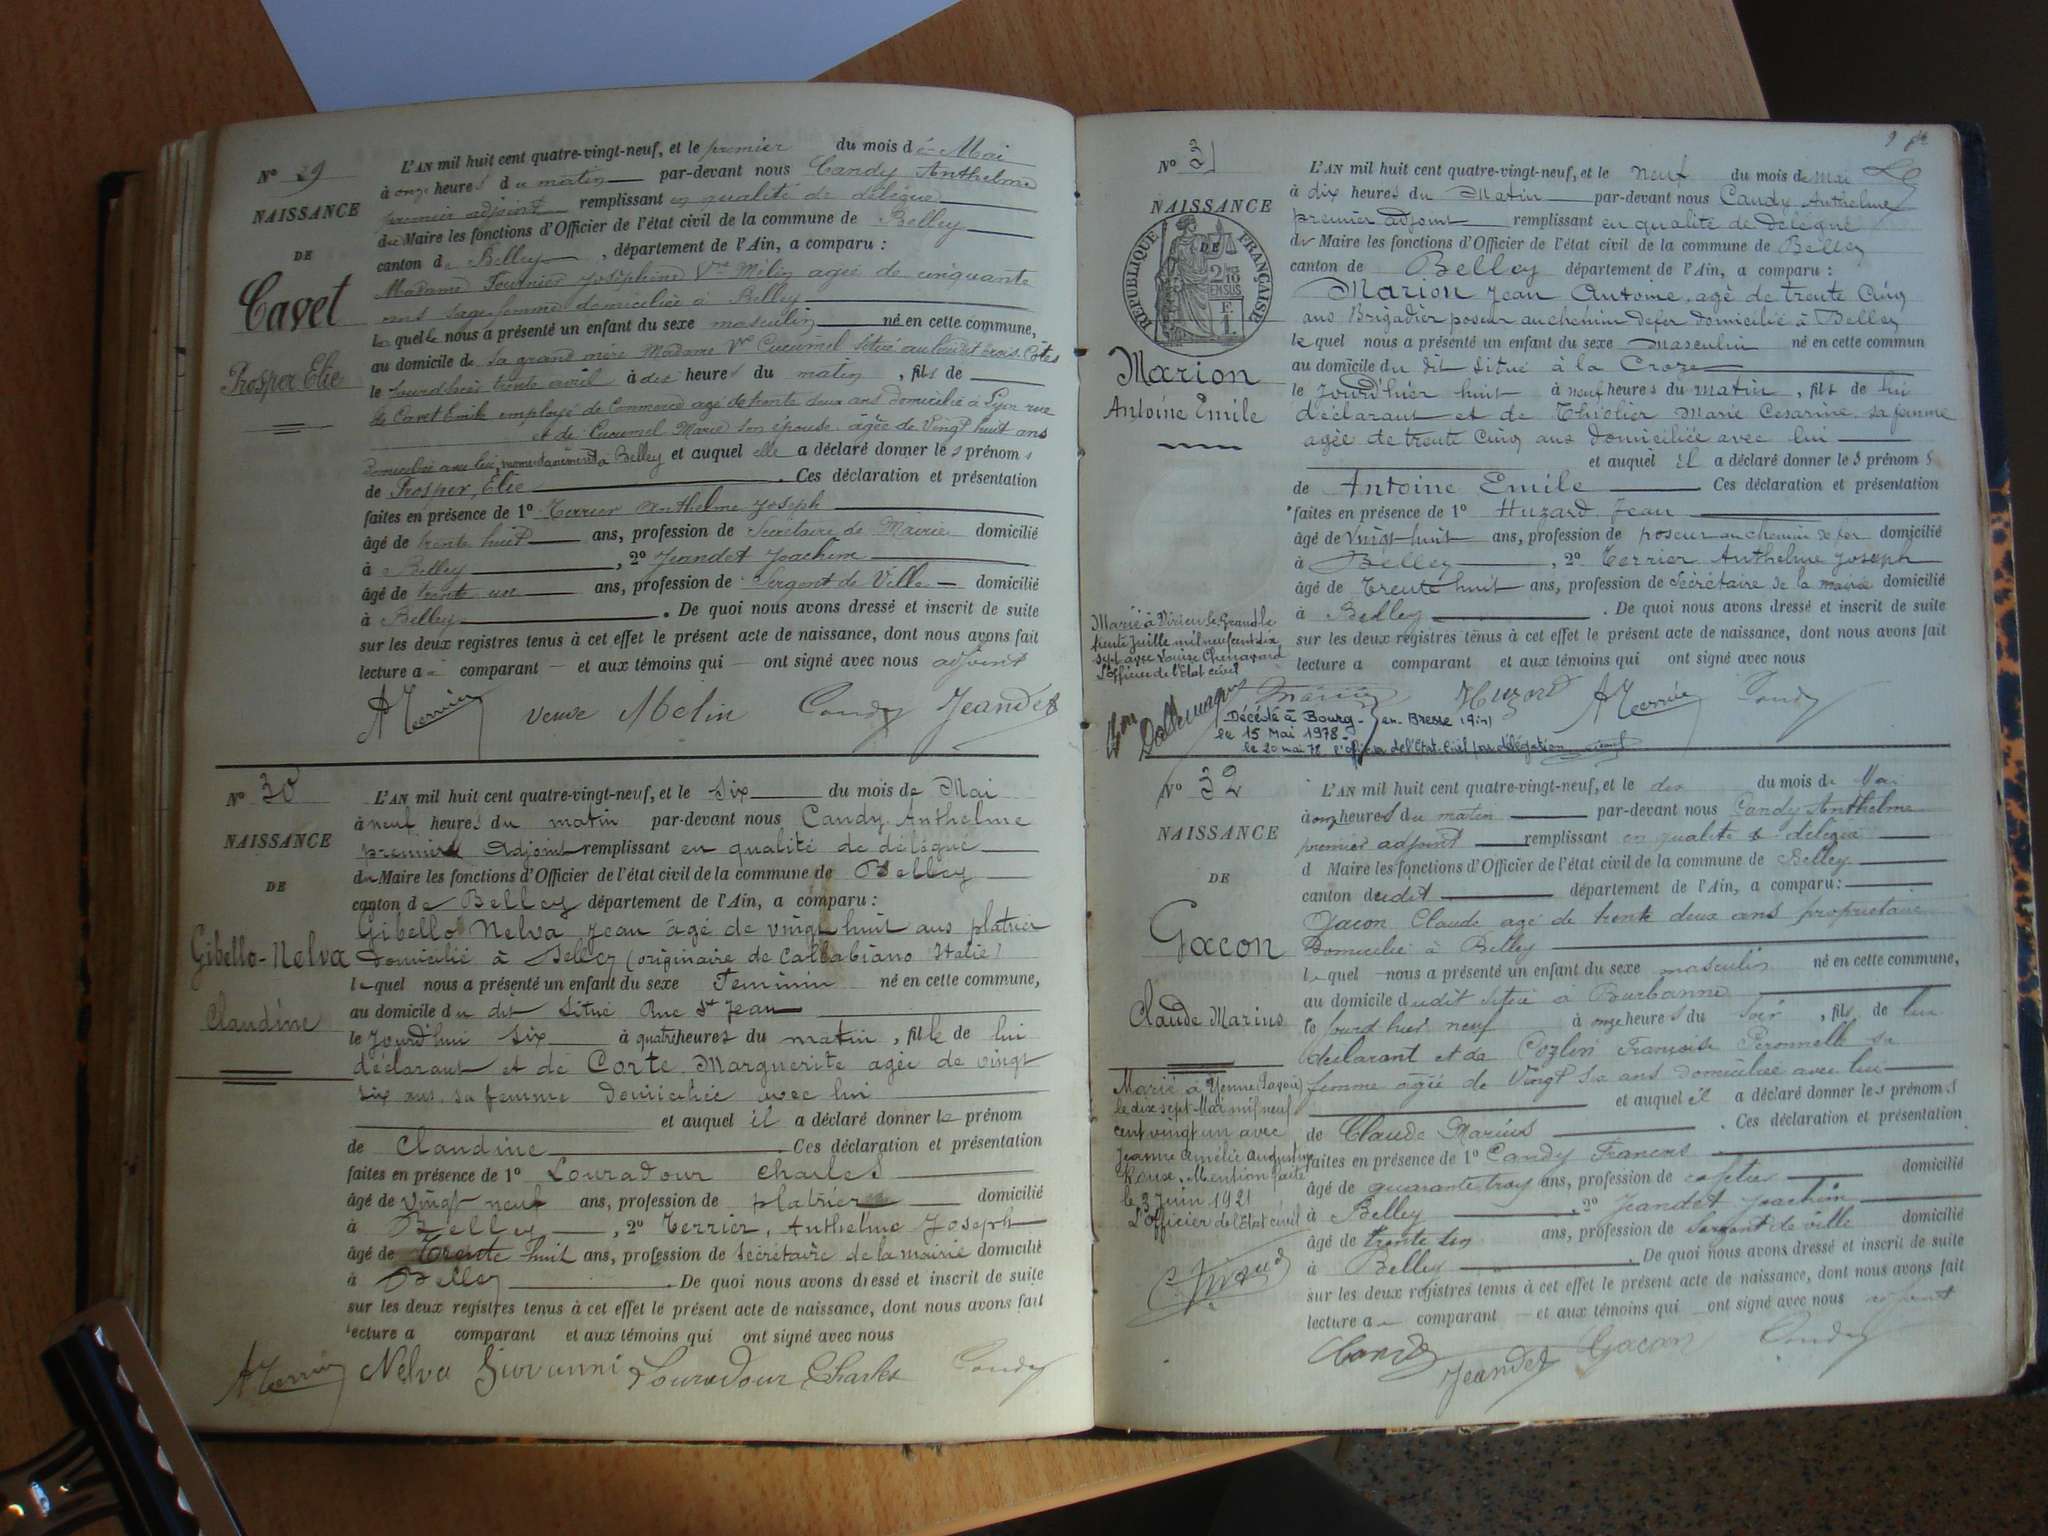 N° 29
NAISSANCE
DE
Cavet
Prosper Elie
L'AN mil huit cent quatre-vingt-neuf, et le premier du mois de Mai
à onze heures du matin par-devant nous Candy Anthelme
premier adjoint remplissant en qualité de délégué
du Maire les fonctions d'Officier de l'état civil de la commune de Belley
canton de Belley, département de l'Ain, a comparu :
Madame Fournier Joséphine Vve Mélin agée de cinquante
ans sage-femme domiciliée à Belley
laquelle nous a présenté un enfant du sexe masculin né en cette commune,
au domicile de sa grand mère Madame Vve Cucumel situé au lieu dit
le jourd'hier trente avril à dix heures du matin, fils de
Cavet Emile employé de Commerce agé de trente deux ans domicilié à Lyon rue
et de Cucumel Marie son épouse agée de Vingt huit ans
domiciliée avec lui, momentanément à Belley et auquel elle a déclaré donner les prénoms
de Prosper, Elie. Ces déclaration et présentation
faites en présence de 1° Terrier Anthelme Joseph
âgé de trente huit ans, profession de Secrétaire de Mairie domicilié
à Belley, 2° Jeandet Joachim
âgé de trente un ans, profession de Sergent de Ville domicilié
à Belley. De quoi nous avons dressé et inscrit de suite
sur les deux registres tenus à cet effet le présent acte de naissance, dont nous avons fait
lecture a comparant et aux témoins qui ont signé avec nous adjoint
A Terrier veuve Melin Candy Jeandet
N° 30
NAISSANCE
DE
Gibello-Nelva
Claudine
L'AN mil huit cent quatre-vingt-neuf, et le Six du mois de Mai
à neuf heures du matin par-devant nous Candy Anthelme
premier Adjoint remplissant en qualité de délégué
du Maire les fonctions d'Officier de l'état civil de la commune de Belley
canton de Belley département de l'Ain, a comparu :
Gibello Nelva Jean âgé de vingt huit ans platrier
domicilié à Belley (originaire de Callabiano Italie)
lequel nous a présenté un enfant du sexe Feminin né en cette commune,
au domicile du dit Situé Rue St Jean
le Jourd'hui six à quatre heures du matin, fille de lui
déclarant et de Corte Marguerite agée de vingt
six ans sa femme Domiciliée avec lui
et auquel il a déclaré donner le prénom
de Claudine Ces déclaration et présentation
faites en présence de 1° Louradour Charles
âgé de vingt neuf ans, profession de platrier domicilié
à Belley, 2° Terrier, Anthelme Joseph
âgé de Trente huit ans, profession de Secrétaire de la mairie domicilié
à Belley. De quoi nous avons dressé et inscrit de suite
sur les deux registres tenus à cet effet le présent acte de naissance, dont nous avons fait
lecture a comparant et aux témoins qui ont signé avec nous
A Terrier Nelva Giovanni Louradour Charles Candy
N° 31
NAISSANCE
DE
RÉPUBLIQUE FRANÇAISE
2/10 EN SUS
F. 1
Marion
Antoine Emile
L'AN mil huit cent quatre-vingt-neuf, et le neuf du mois de mai
à dix heures du Matin par-devant nous Candy Anthelme
premier adjoint remplissant en qualité de Délégué
du Maire les fonctions d'Officier de l'état civil de la commune de Belley
canton de Belley département de l'Ain, a comparu :
Marion Jean Antoine agé de trente Cinq
ans Brigadier poseur au chemin de fer domicilié à Belley
lequel nous a présenté un enfant du sexe Masculin né en cette commun
au domicile du dit situé à la Croze
le Jourd'hier huit à neuf heures du matin, fils de lui
déclarant et de Thiolier Marie Césarine sa femme
agée de trente Cinq ans domiciliée avec lui
et auquel il a déclaré donner les prénoms
de Antoine Emile Ces déclaration et présentation
faites en présence de 1° Huzard Jean
âgé de Vingt huit ans, profession de poseur au chemin de fer domicilié
à Belley, 2° Terrier Anthelme Joseph
âgé de Trente huit ans, profession de Secrétaire de la mairie domicilié
à Belley. De quoi nous avons dressé et inscrit de suite
sur les deux registres tenus à cet effet le présent acte de naissance, dont nous avons fait
lecture a comparant et aux témoins qui ont signé avec nous
Marié à Virieu le Grand le
trente Juillet mil neuf cent dix
sept avec Louise Chenavard
L'officier de l'Etat civil
Marion Huzard A Terrier Candy
Décédé à Bourg-en-Bresse (Ain)
le 15 Mai 1978.
le 20 mai 78 l'officier de l'Etat-Civil par délégation
N° 32
NAISSANCE
DE
Gacon
Claude Marius
L'AN mil huit cent quatre-vingt-neuf, et le dix du mois de Mai
à onze heures du matin par-devant nous Candy Anthelme
premier adjoint remplissant en qualité de délégué
d Maire les fonctions d'Officier de l'état civil de la commune de Belley
canton dudit département de l'Ain, a comparu :
Gacon Claude agé de trente deux ans propriétaire
Domicilié à Belley
lequel nous a présenté un enfant du sexe masculin né en cette commune,
au domicile dudit situé à Burbanne
le Jourd'hier neuf à onze heures du Soir, fils de lui
déclarant et de Françoise Peronnelle sa
femme agée de Vingt six ans domiciliée avec lui
et auquel il a déclaré donner les prénoms
de Claude Marius. Ces déclaration et présentation
faites en présence de 1° Candy Francois
âgé de quarante trois ans, profession de cafetier domicilié
à Belley, 2° Jeandet Joachim
âgé de trente un ans, profession de Sergent de ville domicilié
à Belley. De quoi nous avons dressé et inscrit de suite
sur les deux registres tenus à cet effet le présent acte de naissance, dont nous avons fait
lecture a comparant et aux témoins qui ont signé avec nous adjoint
Marié à Yenne (Savoie)
le dix sept Mai mil neuf
cent vingt un avec
Jeanne Amélie Augustine
Roux. Mention faite
le 3 Juin 1921
L'Officier de l'Etat civil
Candy Jeandet Gacon Candy